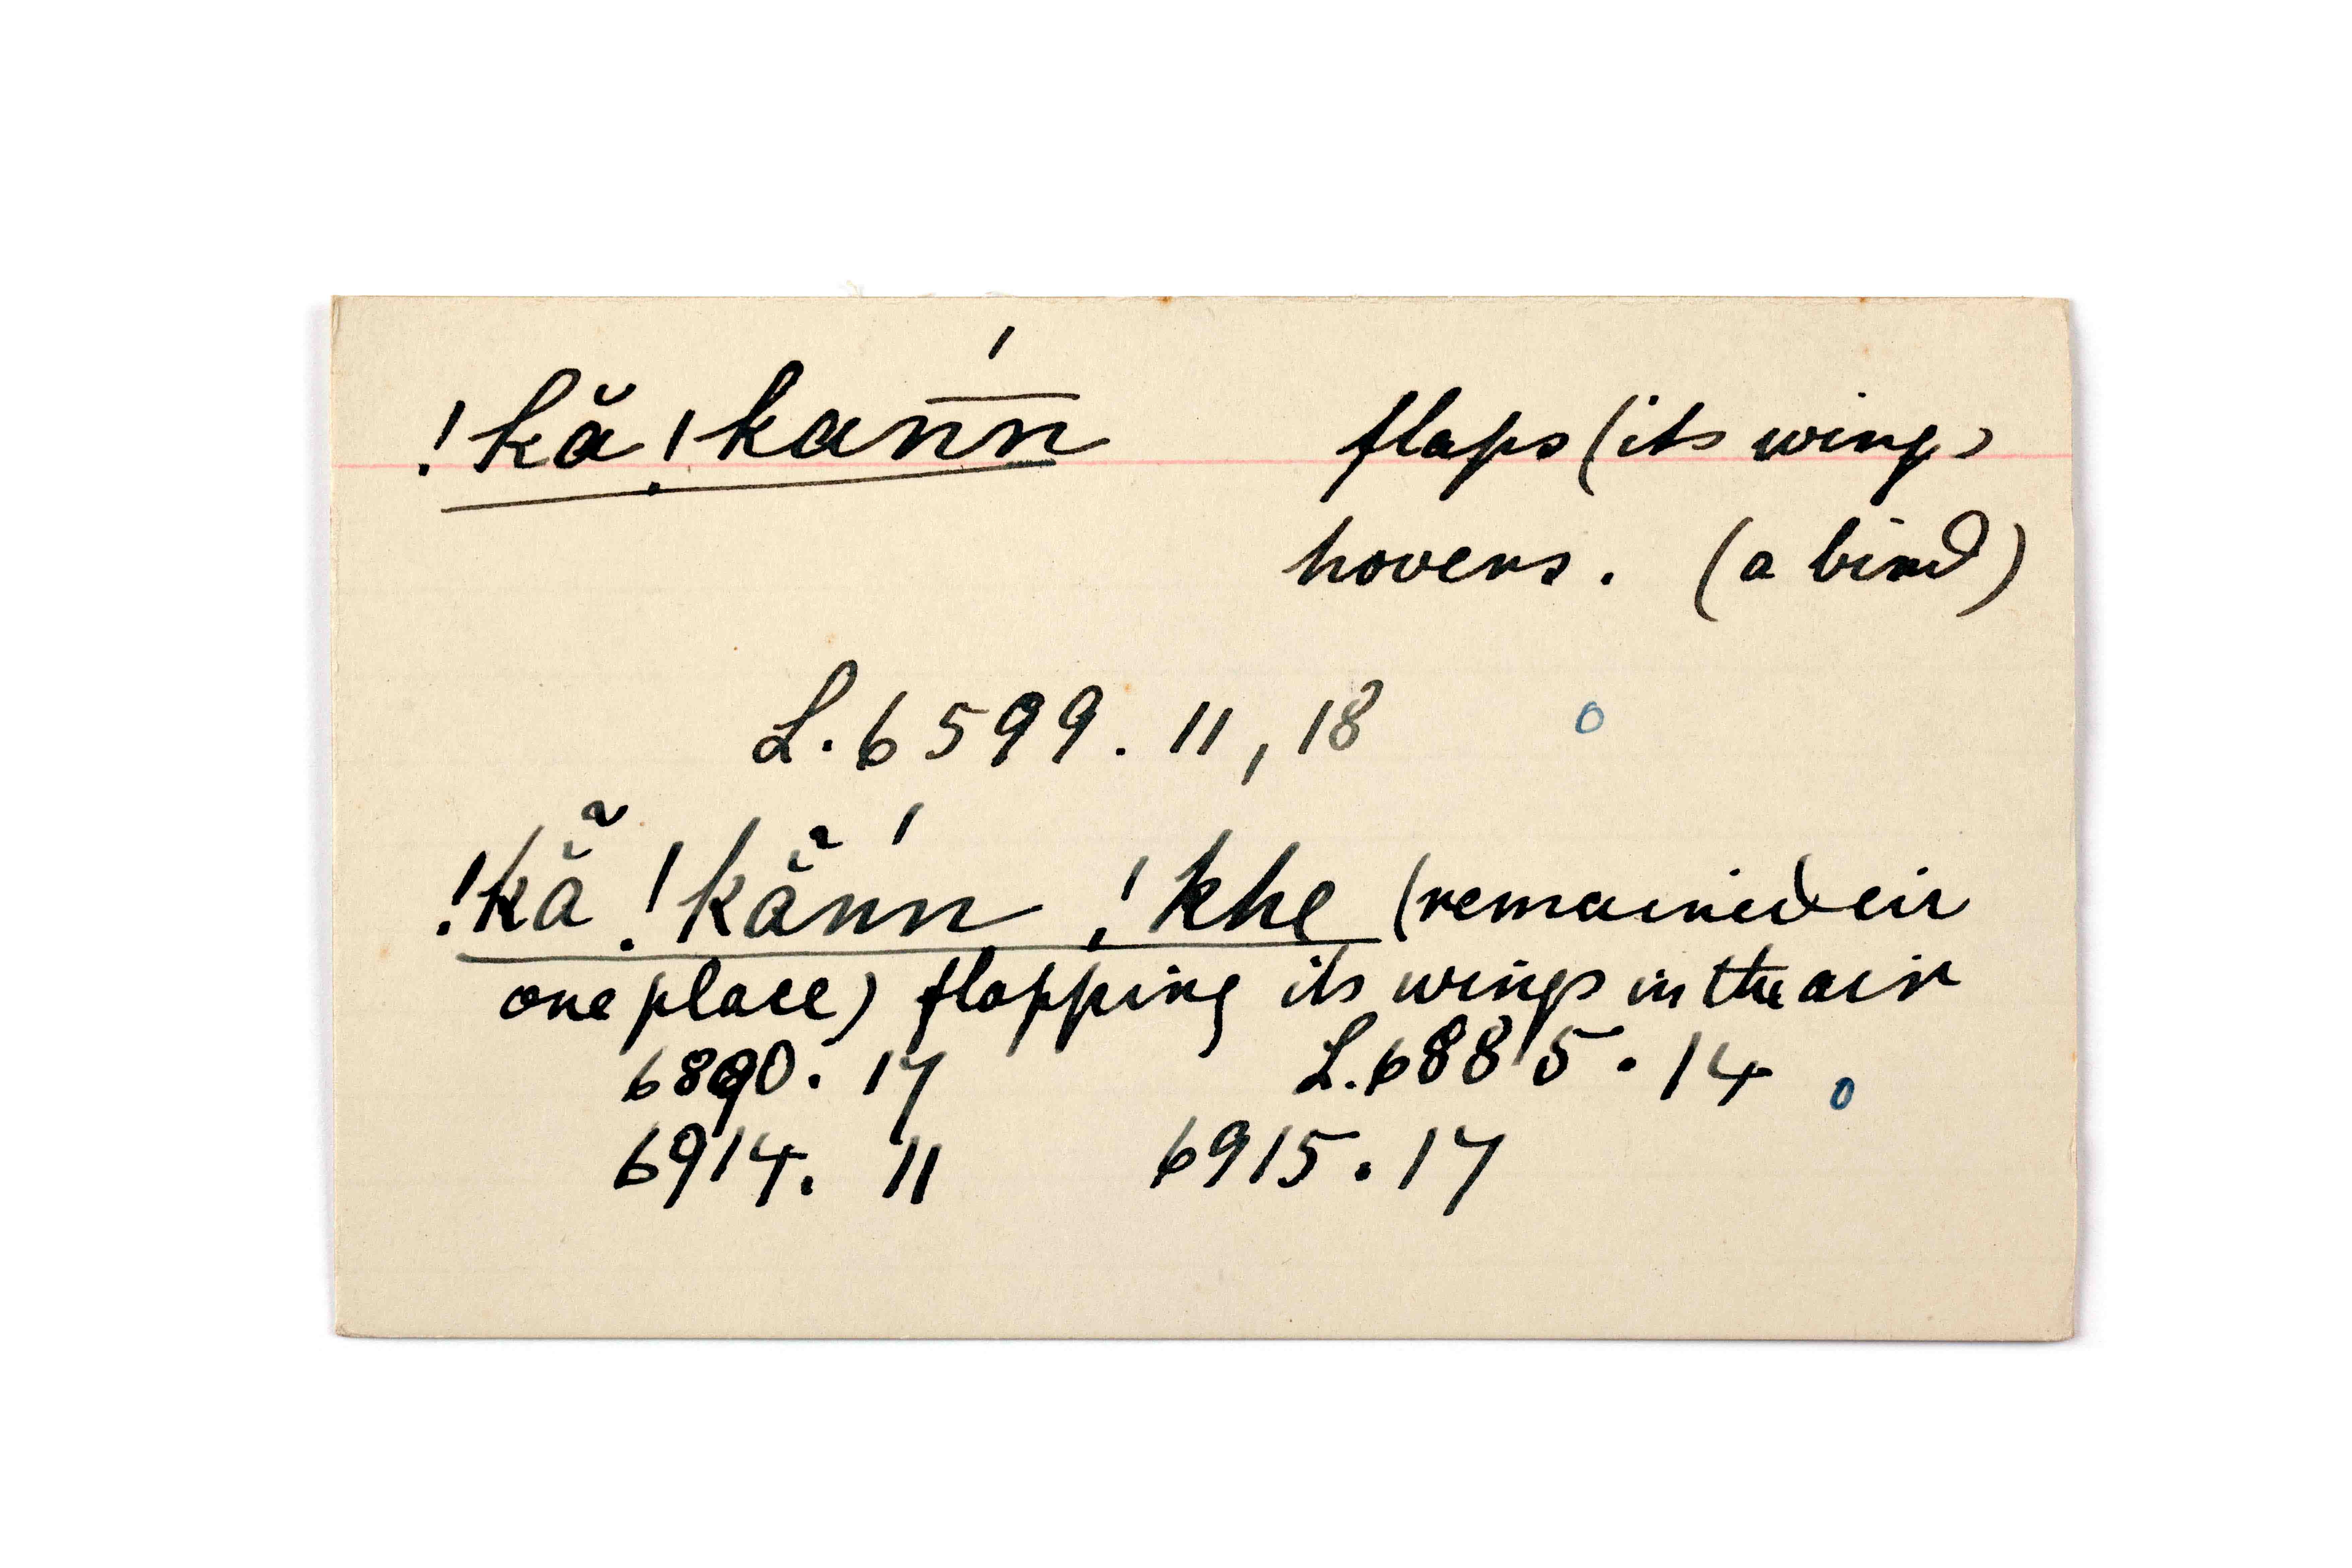 !kă!kan̅́n̅ flaps (its wings
hovers. (a bird)
L. 6599. 11, 18 o
!kẵ !kẵńn !khe (remained in
one place) flapping its wings in the air
6890. 17 L. 6885. 14 o
6914. 11 6915. 17